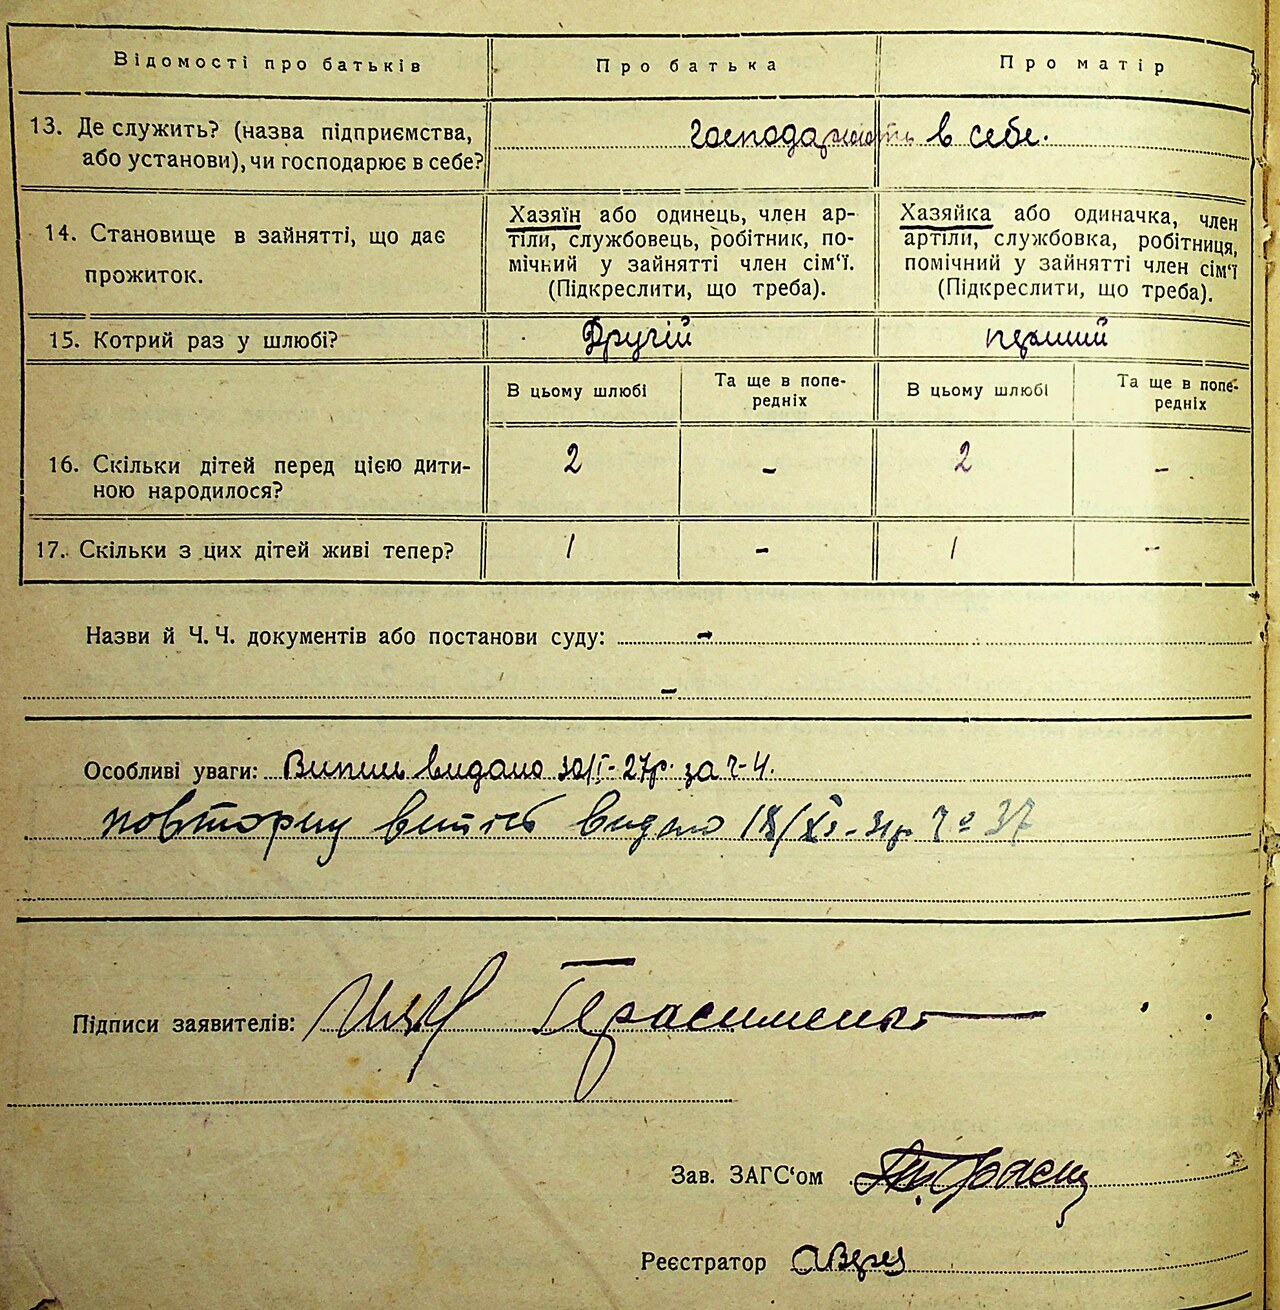 Відомості про батьків
Про батька
Про матір
13. Де служить? (назва підприємства,
або установи), чи господарює в себе?
господарюють в себе.
14. Становище в зайнятті, що дає
прожиток.
Хазяїн або одинець, член ар-
тіли, службовець, робітник, по-
мічний у зайнятті член сім‘ї.
(Підкреслити, що треба).
Хазяйка або одиначка, член
артіли, службовка, робітниця,
помічний у зайнятті член сім‘ї
(Підкреслити, що треба).
15. Котрий раз у шлюбі?
Другій
перший
В цьому шлюбі
Та ще в попе-
редніх
В цьому шлюбі
Та ще в попе-
редніх
16. Скільки дітей перед цією дити-
ною народилося?
2
-
2
-
17. Скільки з цих дітей живі тепер?
1
-
1
-
Назви й Ч. Ч. документів або постанови суду: -
-
Особливі уваги: Випис видано 30/I-27р. за ч-4.
повторну випись видано 18/XI-31р ч° 37
Підписи заявителів: Герасименко
Зав. ЗАГС‘ом
Реєстратор